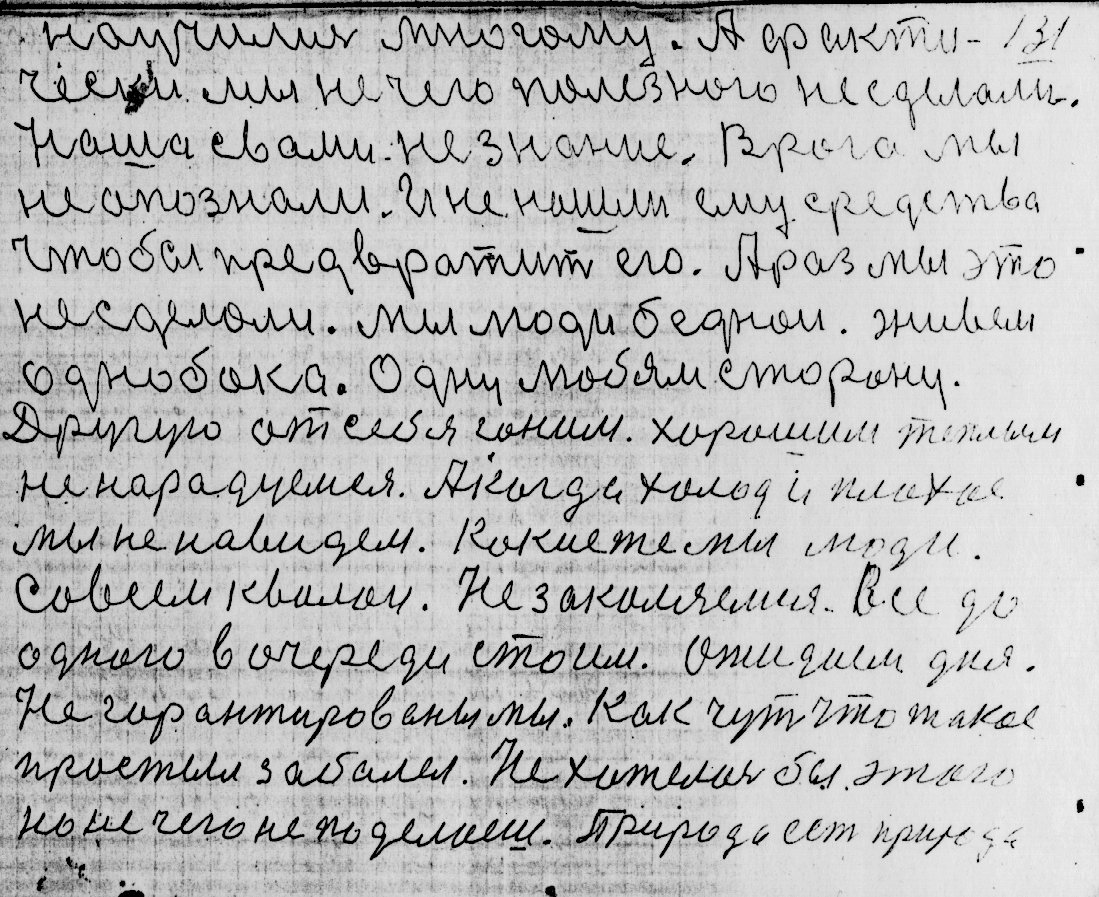 научились многому. А факти- 131
чески мы нечего полезного несделали.
Наша свами. незнание. Врага мы
неопознали. И не нашли ему средства
чтобы предвратит его. А раз мы это
несделали. мы люди бедной. живем
однобока. Одну любям сторону.
Другую от себя гоним. хорошим теплым
не нарадуемся. А когда холод и плохое
мы ненавидем. Какие же мы люди.
Совсем кволой. Не закаляемся. Все до
одного в очереди стоим. Ожидаем дня.
Не гарантированы мы. Как чут что такое
простыл заболел. Не хотелося бы этого
но не чего не поделаеш. Природа ест природа